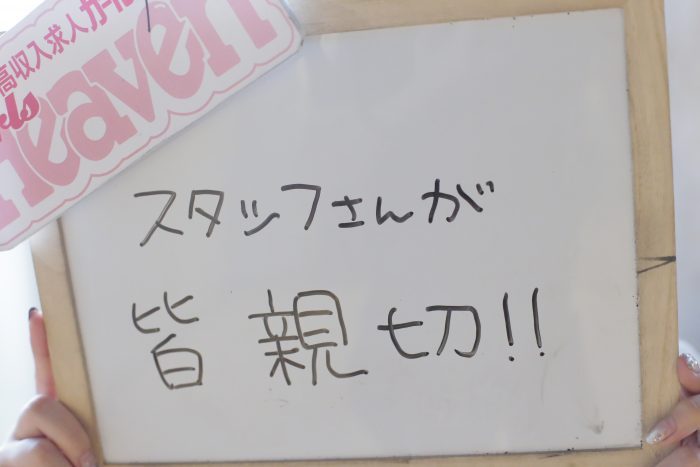 高収入求人ガール
Heaven
スタッフさんが
皆親切!!